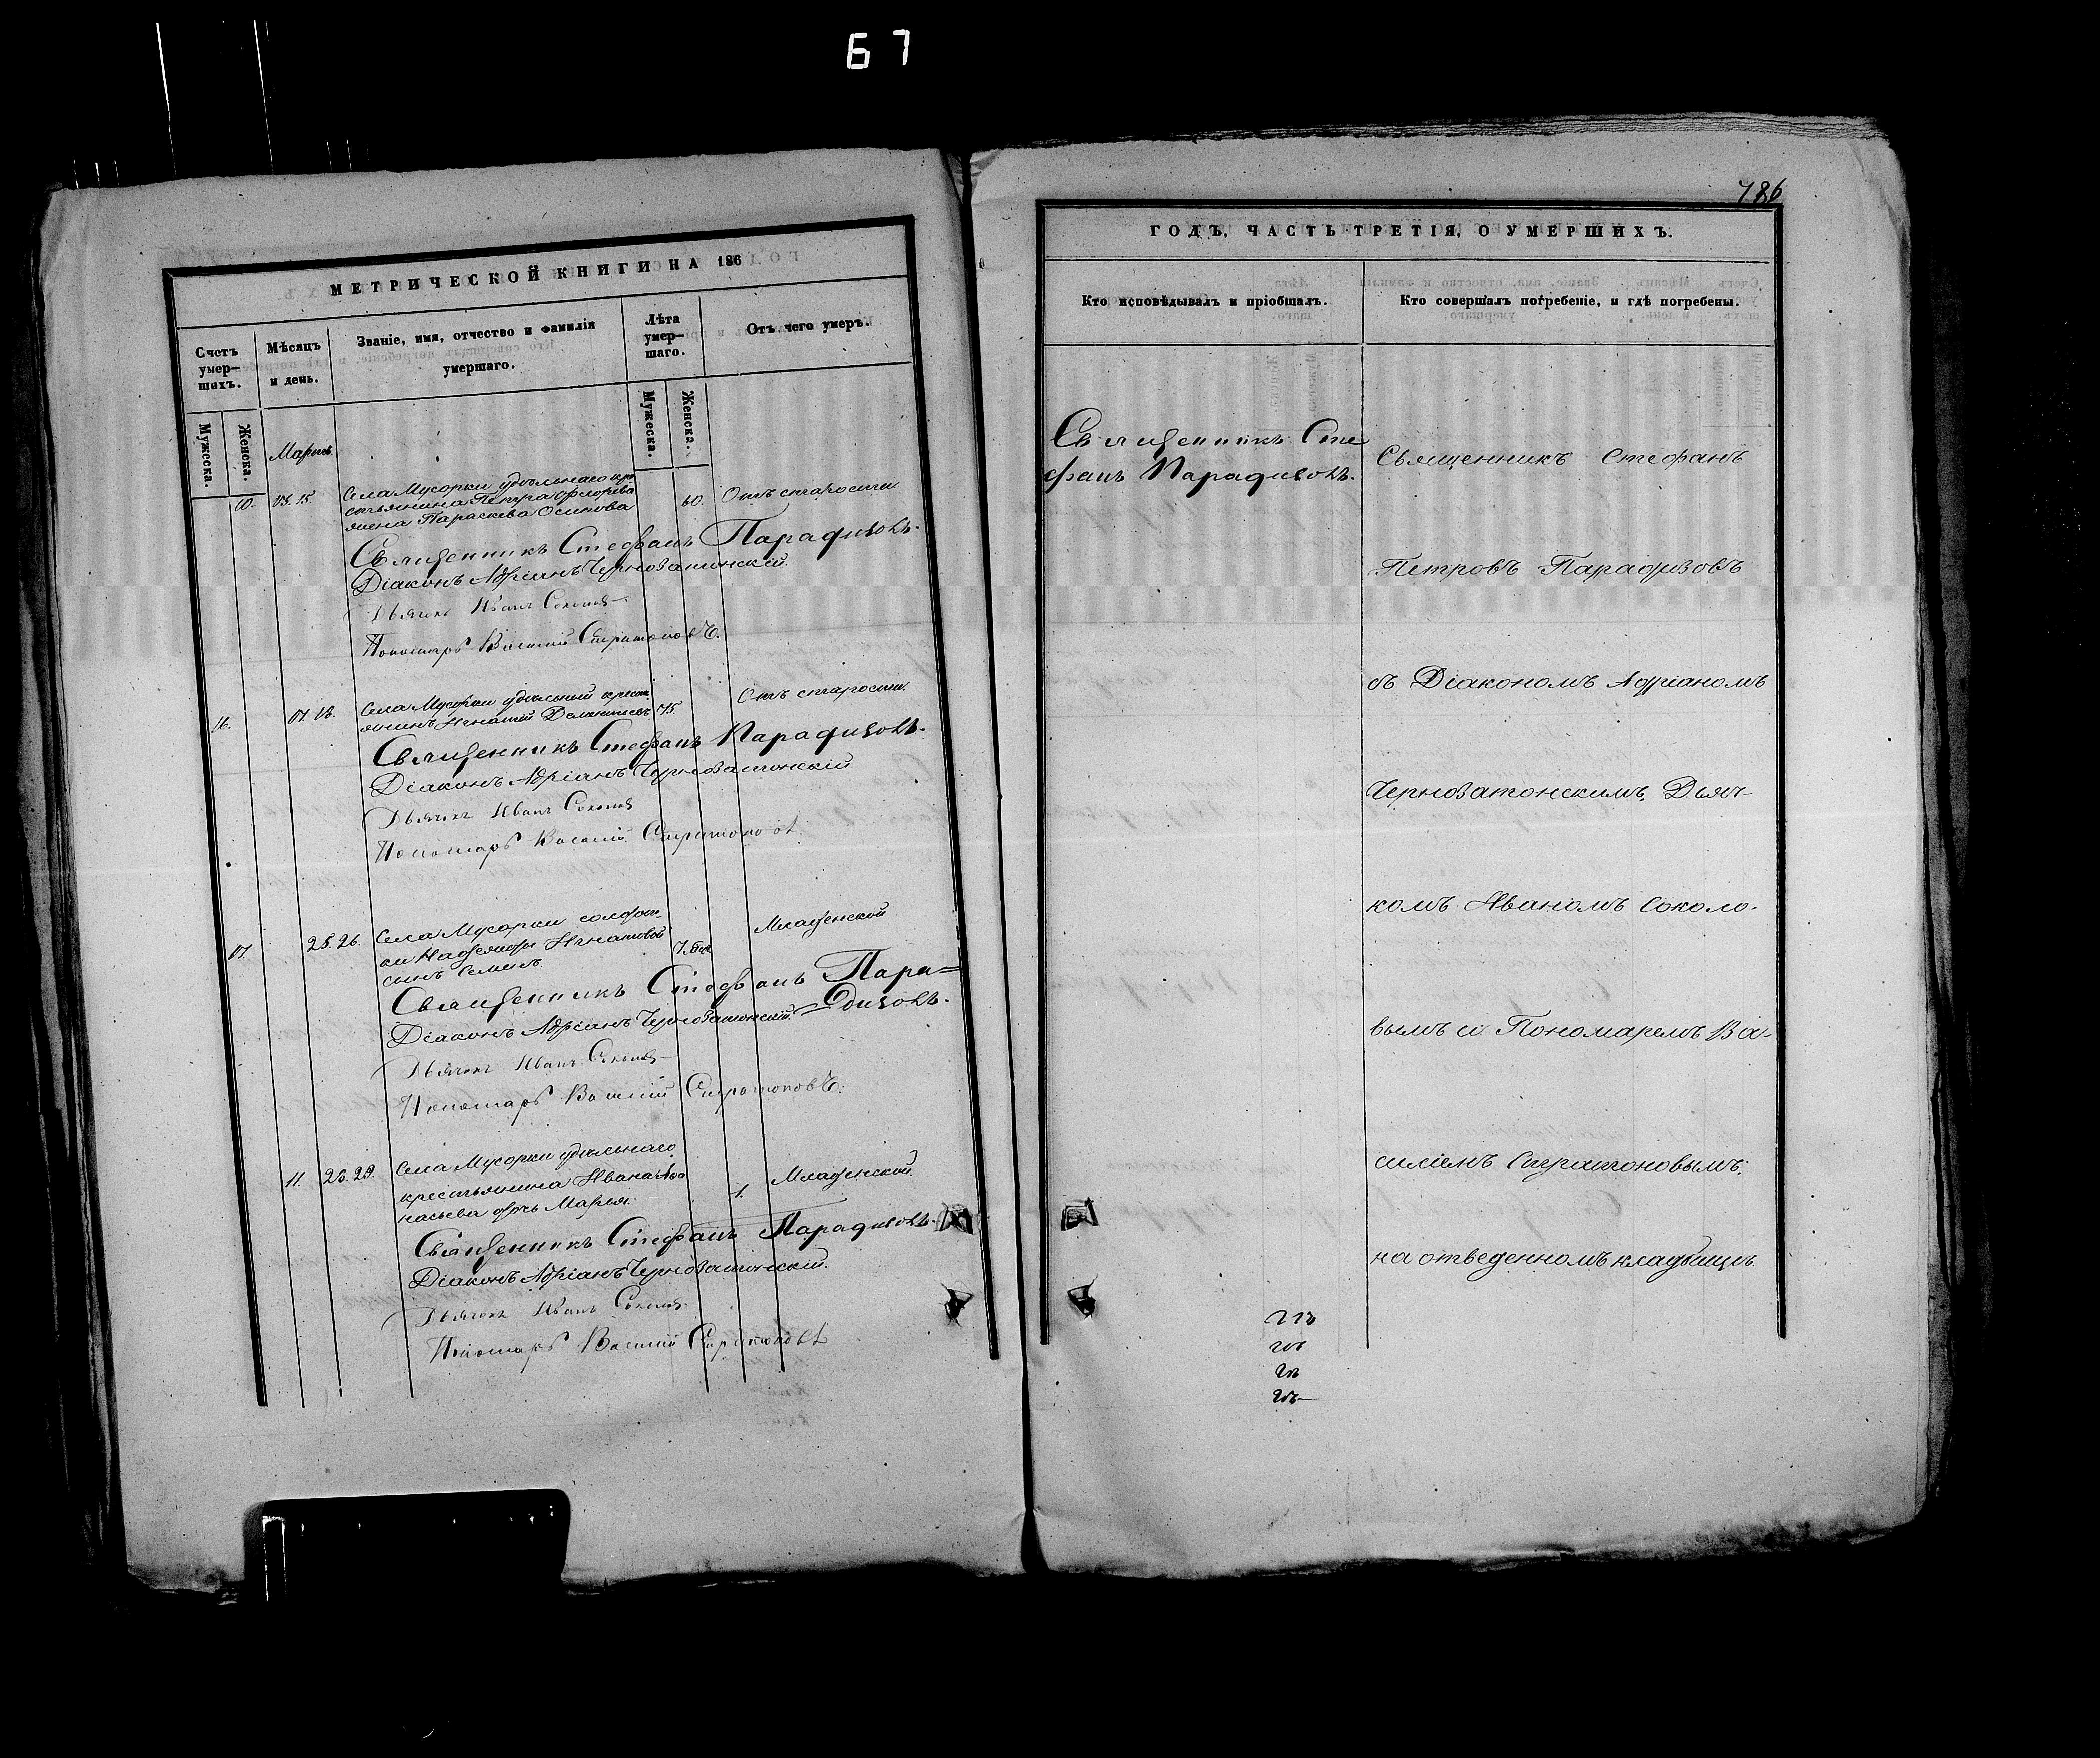 67
МЕТРИЧЕСКОЙ КНИГИ НА 186
Счетъ умер—шихъ.
Мѣсяцъ и день.
Званіе, имя, отчество и фамилія умершаго.
Лѣта умер—шаго.
Отъ чего умеръ.
Мужеска.
Женска.
Мужеска.
Женска.
Мартъ
10. 13. 15. Села Мусорки удѣльнаго кре
стьянина Петра Флорова
жена Параскева Осипова
60. Отъ старости
Священникъ Стефанъ Парадизовъ.
Діаконъ Адріанъ Чернозатонскій.
Дьячекъ Иванъ Соколовъ
Пономарь Василій Стратоновъ.
16. 17. 18. Села Мусорки удѣльный крест
янинъ Игнатій
75. Отъ старости
Священникъ Стефанъ Парадизовъ.
Діаконъ Адріанъ Чернозатонскій
Дьячекъ Иванъ Соколовъ
Пономарь Василій Стратоновъ
17. 25. 26. Села Мусорки солдат
ки Надежды Игнатовой
сынъ Семенъ.
Младенской
Священникъ Стефанъ Пара=
=дизовъ.
Діаконъ Адріанъ Чернозатонскій
Дьячекъ Иванъ Соколовъ
Пономарь Василій Стратоновъ.
11. 26. 29. Села Мусорки удѣльнаго
крестьянина Ивана Афа
насьева дочь Марья.
1. Младенской
Священникъ Стефанъ Парадизовъ.
Діаконъ Адріанъ Чернозатонскій.
Дьячекъ Иванъ Соколовъ
Пономарь Василій Стратоновъ
786
ГОДЪ, ЧАСТЬ ТРЕТІЯ, О УМЕРШИХЪ.
Кто исповѣдывалъ и пріобщалъ.
Кто совершалъ погребеніе, и гдѣ погребены.
Священникъ Сте
фанъ Парадизовъ.
Священникъ Стефанъ
Петровъ Парадизовъ
съ Діакономъ Адріаномъ
Чернозатонскимъ, Дьяч-
комъ Иваномъ Соколо-
вымъ и Пономаремъ Ва-
силіемъ Стратоновымъ,
на отведенномъ кладбищѣ.